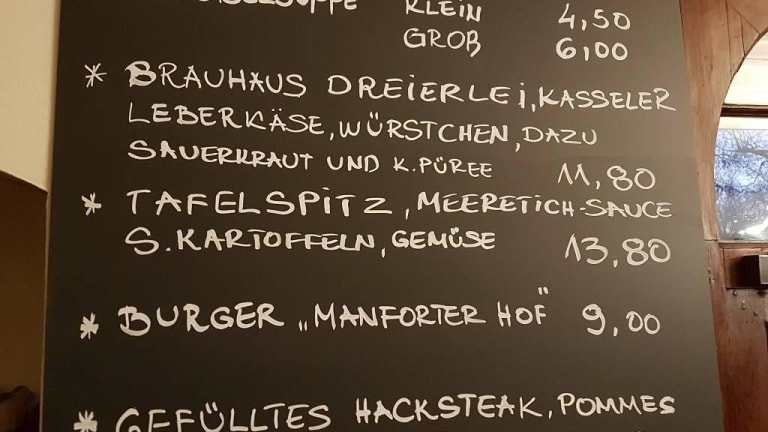 KLEIN 4,50
GROß 6,00
* BRAUHAUS DREIERLEI, KASSELER
LEBERKÄSE, WÜRSTCHEN, DAZU
SAUERKRAUT UND K. PÜREE 11,80
* TAFELSPITZ, MEERETICH-SAUCE
S. KARTOFFELN, GEMÜSE 13,80
* BURGER „MANFORTER HOF" 9,00
* GEFÜLLTES HACKSTEAK, POMMES